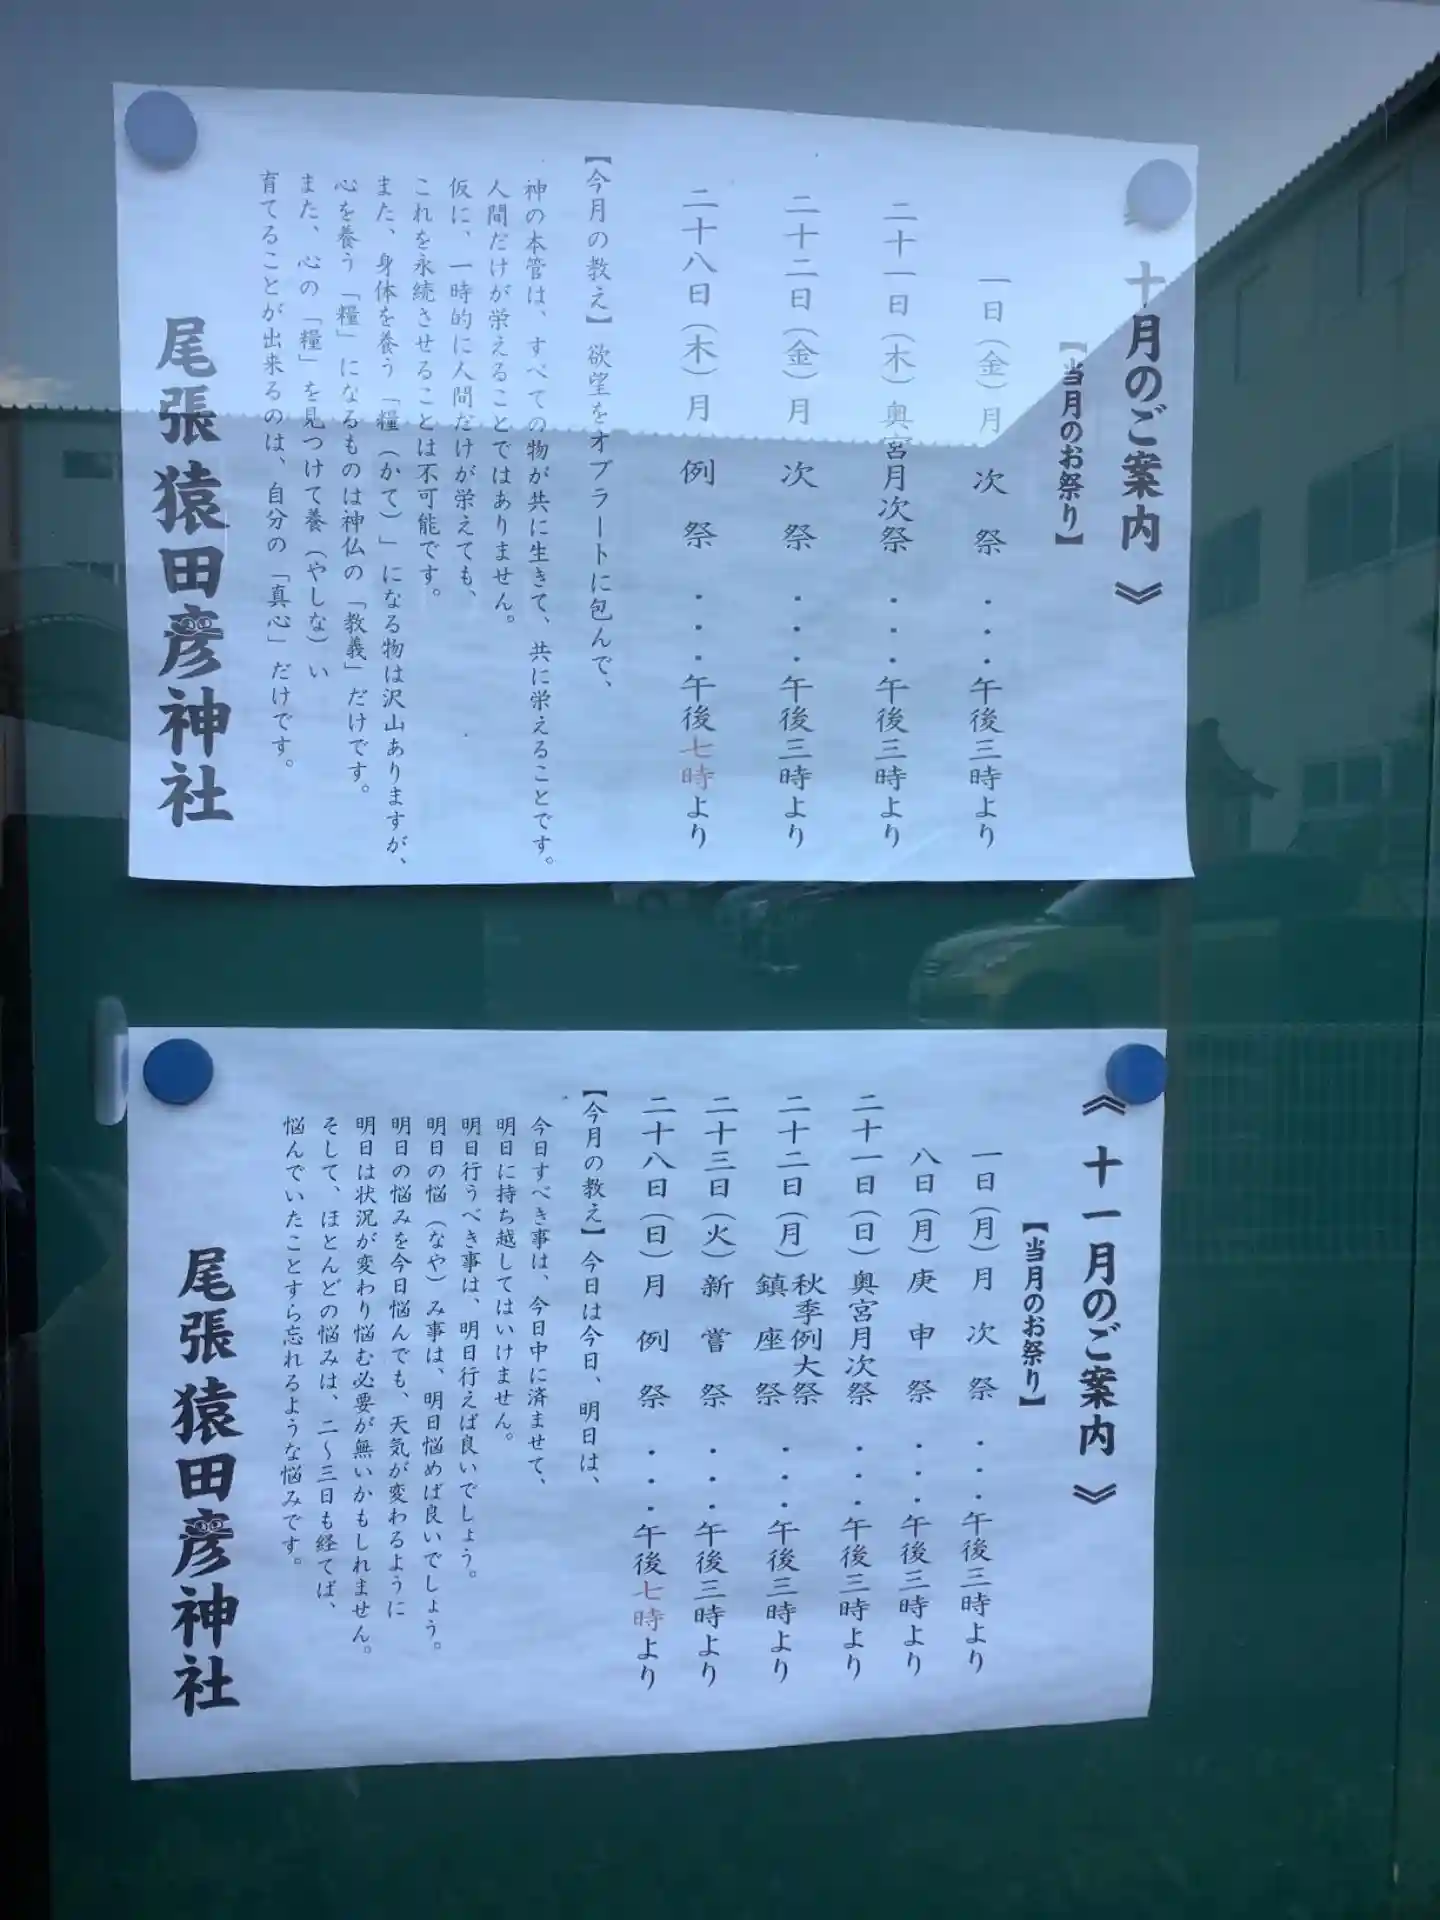 十月のご案内 》
【当月のお祭り】
一日（金）月次祭・・・午後三時より
二十一日（木）奥宮月次祭・・・午後三時より
二十二日（金）月次祭・・・午後三時より
二十八日（木）月例祭・・・午後七時より
【今月の教え】欲望をオブラートに包んで、
神の本管は、すべての物が共に生きて、共に栄えることです。
人間だけが栄えることではありません。
仮に、一時的に人間だけが栄えても、
これを永続させることは不可能です。
また、身体を養う「糧（かて）」になる物は沢山ありますが、
心を養う「糧」になるものは神仏の「教義」だけです。
また、心の「糧」を見つけて養（やしな）い
育てることが出来るのは、自分の「真心」だけです。
尾張猿田彦神社
《 十一月のご案内 》
【当月のお祭り】
一日（月）月次祭・・・午後三時より
八日（月）庚申祭・・・午後三時より
二十一日（日）奥宮月次祭・・・午後三時より
二十二日（月）秋季例大祭 鎮座祭・・・午後三時より
二十三日（火）新嘗祭・・・午後三時より
二十八日（日）月例祭・・・午後七時より
【今月の教え】今日は今日、明日は、
今日すべき事は、今日中に済ませて、
明日に持ち越してはいけません。
明日行うべき事は、明日行えば良いでしょう。
明日の悩（なや）み事は、明日悩めば良いでしょう。
明日の悩みを今日悩んでも、天気が変わるように
明日は状況が変わり悩む必要が無いかもしれません。
そして、ほとんどの悩みは、二〜三日も経てば、
悩んでいたことすら忘れるような悩みです。
尾張猿田彦神社